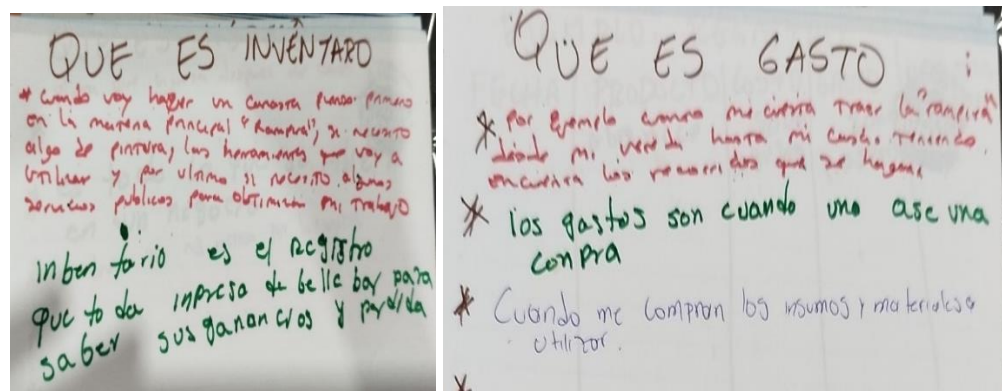 QUE ES INVENTARO
* cuando voy hager un canasta pienso primero
en la materia principal "Rampira", si necesito
algo de pintura, las herramientas que voy a
utilizar y por ultimo si necesito algunos
servicios publicos para obtimizar mi trabajo
inben tario es el registro
que to da inpresa de be lle bar para
saber sus ganancios y perdida
QUE ES GASTO :
* Por ejemplo cuanto me cuesta traer la "rampira"
desde mi vereda hasta mi teniendo
encuenta los recorridos que se hagan
* los gastos son cuando uno ase una
conpra
* Cuando me compran los insumos y materiales a
utilizar.
*